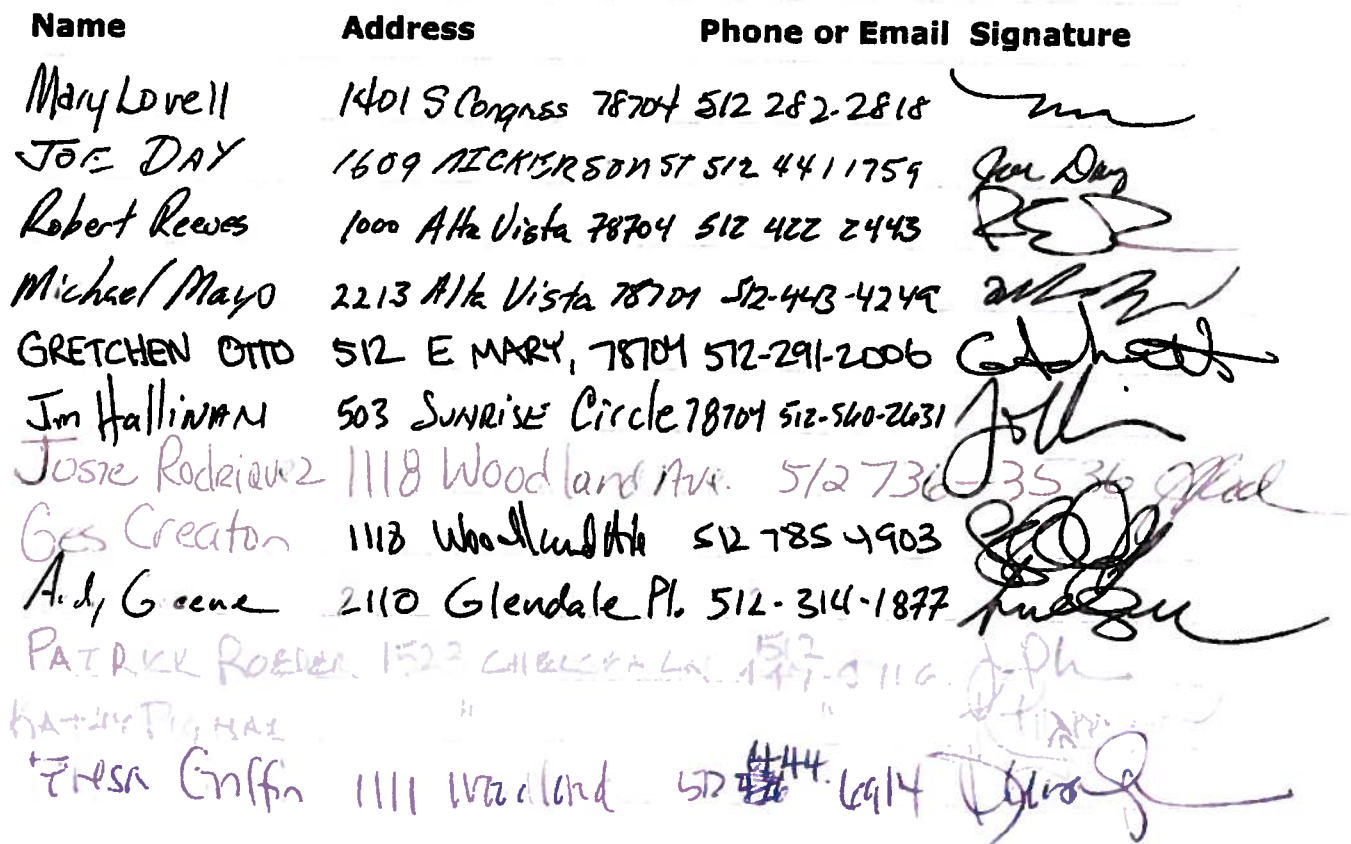 Name Address Phone or Email Signature
Mary Lovell 1401 S Congrss 78704 512 282-2818
JOE DAY 1609 NICKERSON ST 512 441 1759 Joe Day
Robert Reeves 1000 Alta Vista 78704 512 422 2443
Michael Mayo 2213 Alta Vista 78704 512-443-4249
GRETCHEN OTTO 512 E MARY, 78704 512-291-2006
Jim HallinAN 503 SUNRISE Circle 78704 512-560-2631
Josie Rodriquez 1118 Woodland Ave. 512 736-3536
Ges Creaton 1118 Woodland Ave 512 785 4903
Andy Greene 2110 Glendale Pl. 512-314-1877
PATRICK ROEDER CHELSEA LN 512
KATHY " "
Griffin 1111 Woodland 512 444-6914